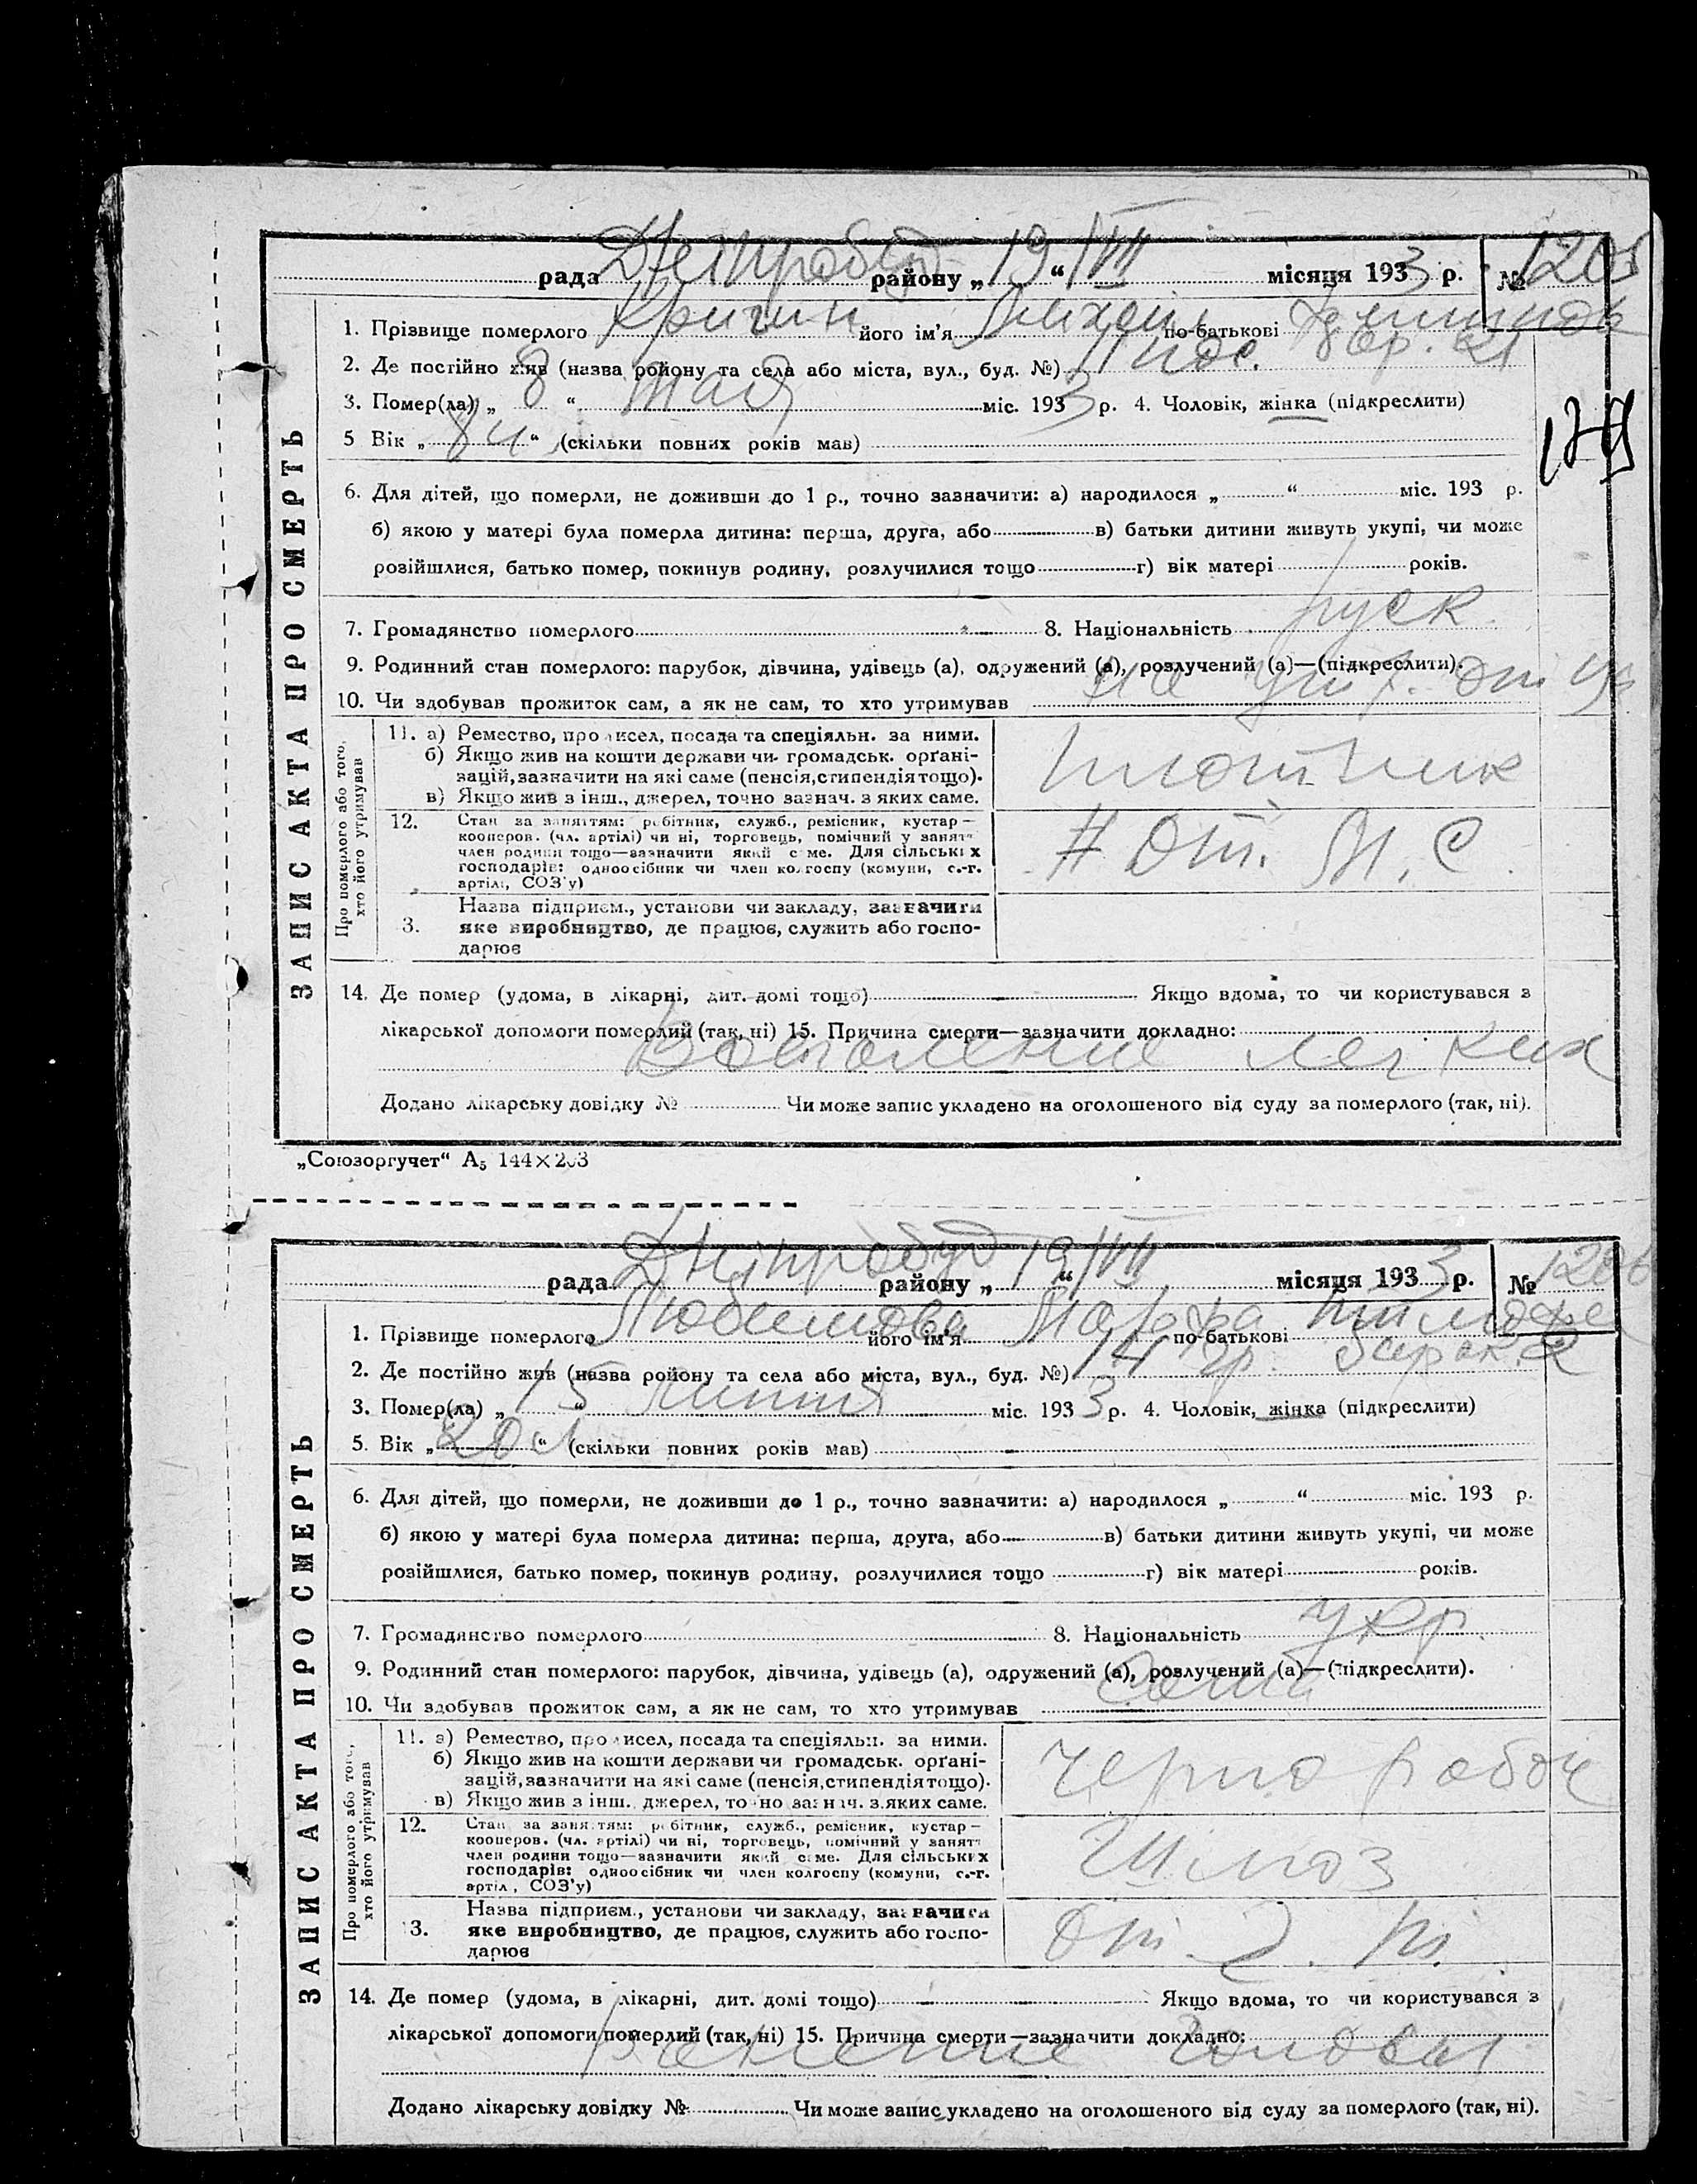 рада Дніпробуд району „19“ VII місяця 1933 р. № 1205
1. Прізвище померлого його ім'я Михаил по-батькові
2. Де постійно жив (назва ройону та села або міста, вул., буд. №) 11 пос. бар. 21
3. Помер(ла) „8“ мая міс. 1933 р. 4. Чоловік, жінка (підкреслити)
5 Вік „ “ (скільки повних років мав)
6. Для дітей, що померли, не доживши до 1 р., точно зазначити: а) народилося „ “ міс. 193 р.
б) якою у матері була померла дитина: перша, друга, або в) батьки дитини живуть укупі, чи може
розійшлися, батько помер, покинув родину, розлучилися тощо г) вік матері років.
7. Громадянство померлого 8. Національність руск.
9. Родинний стан померлого: парубок, дівчина, удівець (а), одружений (а), розлучений (а)—(підкреслити).
10. Чи здобував прожиток сам, а як не сам, то хто утримував на
11. а) Ремество, промисел, посада та спеціяльн. за ними.
б) Якщо жив на кошти держави чи громадськ. орґані-
зацій, зазначити на які саме (пенсія, стипендія тощо).
в) Якщо жив з інш., джерел, точно зазнач. з яких саме.
плотник
12. Стан за заняттям: робітник, служб., ремісник, кустар—
кооперов. (чл. артілі) чи ні, торговець, помічний у занятт
член родини тощо—зазначити який саме. Для сільських
господарів: одноосібник чи член колгоспу (комуни, с.-г.
артілі, СОЗ'у)
От.
3. Назва підприєм., установи чи закладу, зазначити
яке виробництво, де працює, служить або госпо-
дарює
Про померлого або того,
хто його утримував
ЗАПИС АКТА ПРО СМЕРТЬ
14. Де помер (удома, в лікарні, дит. домі тощо) Якщо вдома, то чи користувався з
лікарської допомоги померлий (так, ні) 15. Причина смерти—зазначити докладно:
Воспаление легких
Додано лікарську довідку № Чи може запис укладено на оголошеного від суду за померлого (так, ні).
„Союзоргучет“ А₅ 144×203
рада Дніпробуд району „19“ VII місяця 1933 р. № 1206
1. Прізвище померлого Любимова його ім'я Марфа по-батькові Тимофе
2. Де постійно жив (назва ройону та села або міста, вул., буд. №) 14 барак 2
3. Помер(ла) „15“ липня міс. 1933 р. 4. Чоловік, жінка (підкреслити)
5. Вік „20 л“ (скільки повних років мав)
6. Для дітей, що померли, не доживши до 1 р., точно зазначити: а) народилося „ “ міс. 193 р.
б) якою у матері була померла дитина: перша, друга, або в) батьки дитини живуть укупі, чи може
розійшлися, батько помер, покинув родину, розлучилися тощо г) вік матері років.
7. Громадянство померлого 8. Національність укр.
9. Родинний стан померлого: парубок, дівчина, удівець (а), одружений (а), розлучений (а)—(підкреслити).
10. Чи здобував прожиток сам, а як не сам, то хто утримував Сама
11. а) Ремество, промисел, посада та спеціяльн. за ними.
б) Якщо жив на кошти держави чи громадськ. орґані-
зацій, зазначити на які саме (пенсія, стипендія тощо).
в) Якщо жив з інш. джерел, точно зазнач. з яких саме.
Черно рабоч
12. Стан за заняттям: робітник, служб., ремісник, кустар—
кооперов. (чл. артілі) чи ні, торговець, помічний у занятт
член родини тощо—зазначити який саме. Для сільських
господарів: одноосібник чи член колгоспу (комуни, с.-г.
артіл, СОЗ'у)
13. Назва підприєм., установи чи закладу, зазначити
яке виробництво, де працює, служить або госпо-
дарює
Про померлого або того,
хто його утримував
ЗАПИС АКТА ПРО СМЕРТЬ
14. Де помер (удома, в лікарні, дит. домі тощо) Якщо вдома, то чи користувався з
лікарської допомоги померлий (так, ні) 15. Причина смерти—зазначити докладно:
Ранение головы
Додано лікарську довідку № Чи може запис укладено на оголошеного від суду за померлого (так, ні).